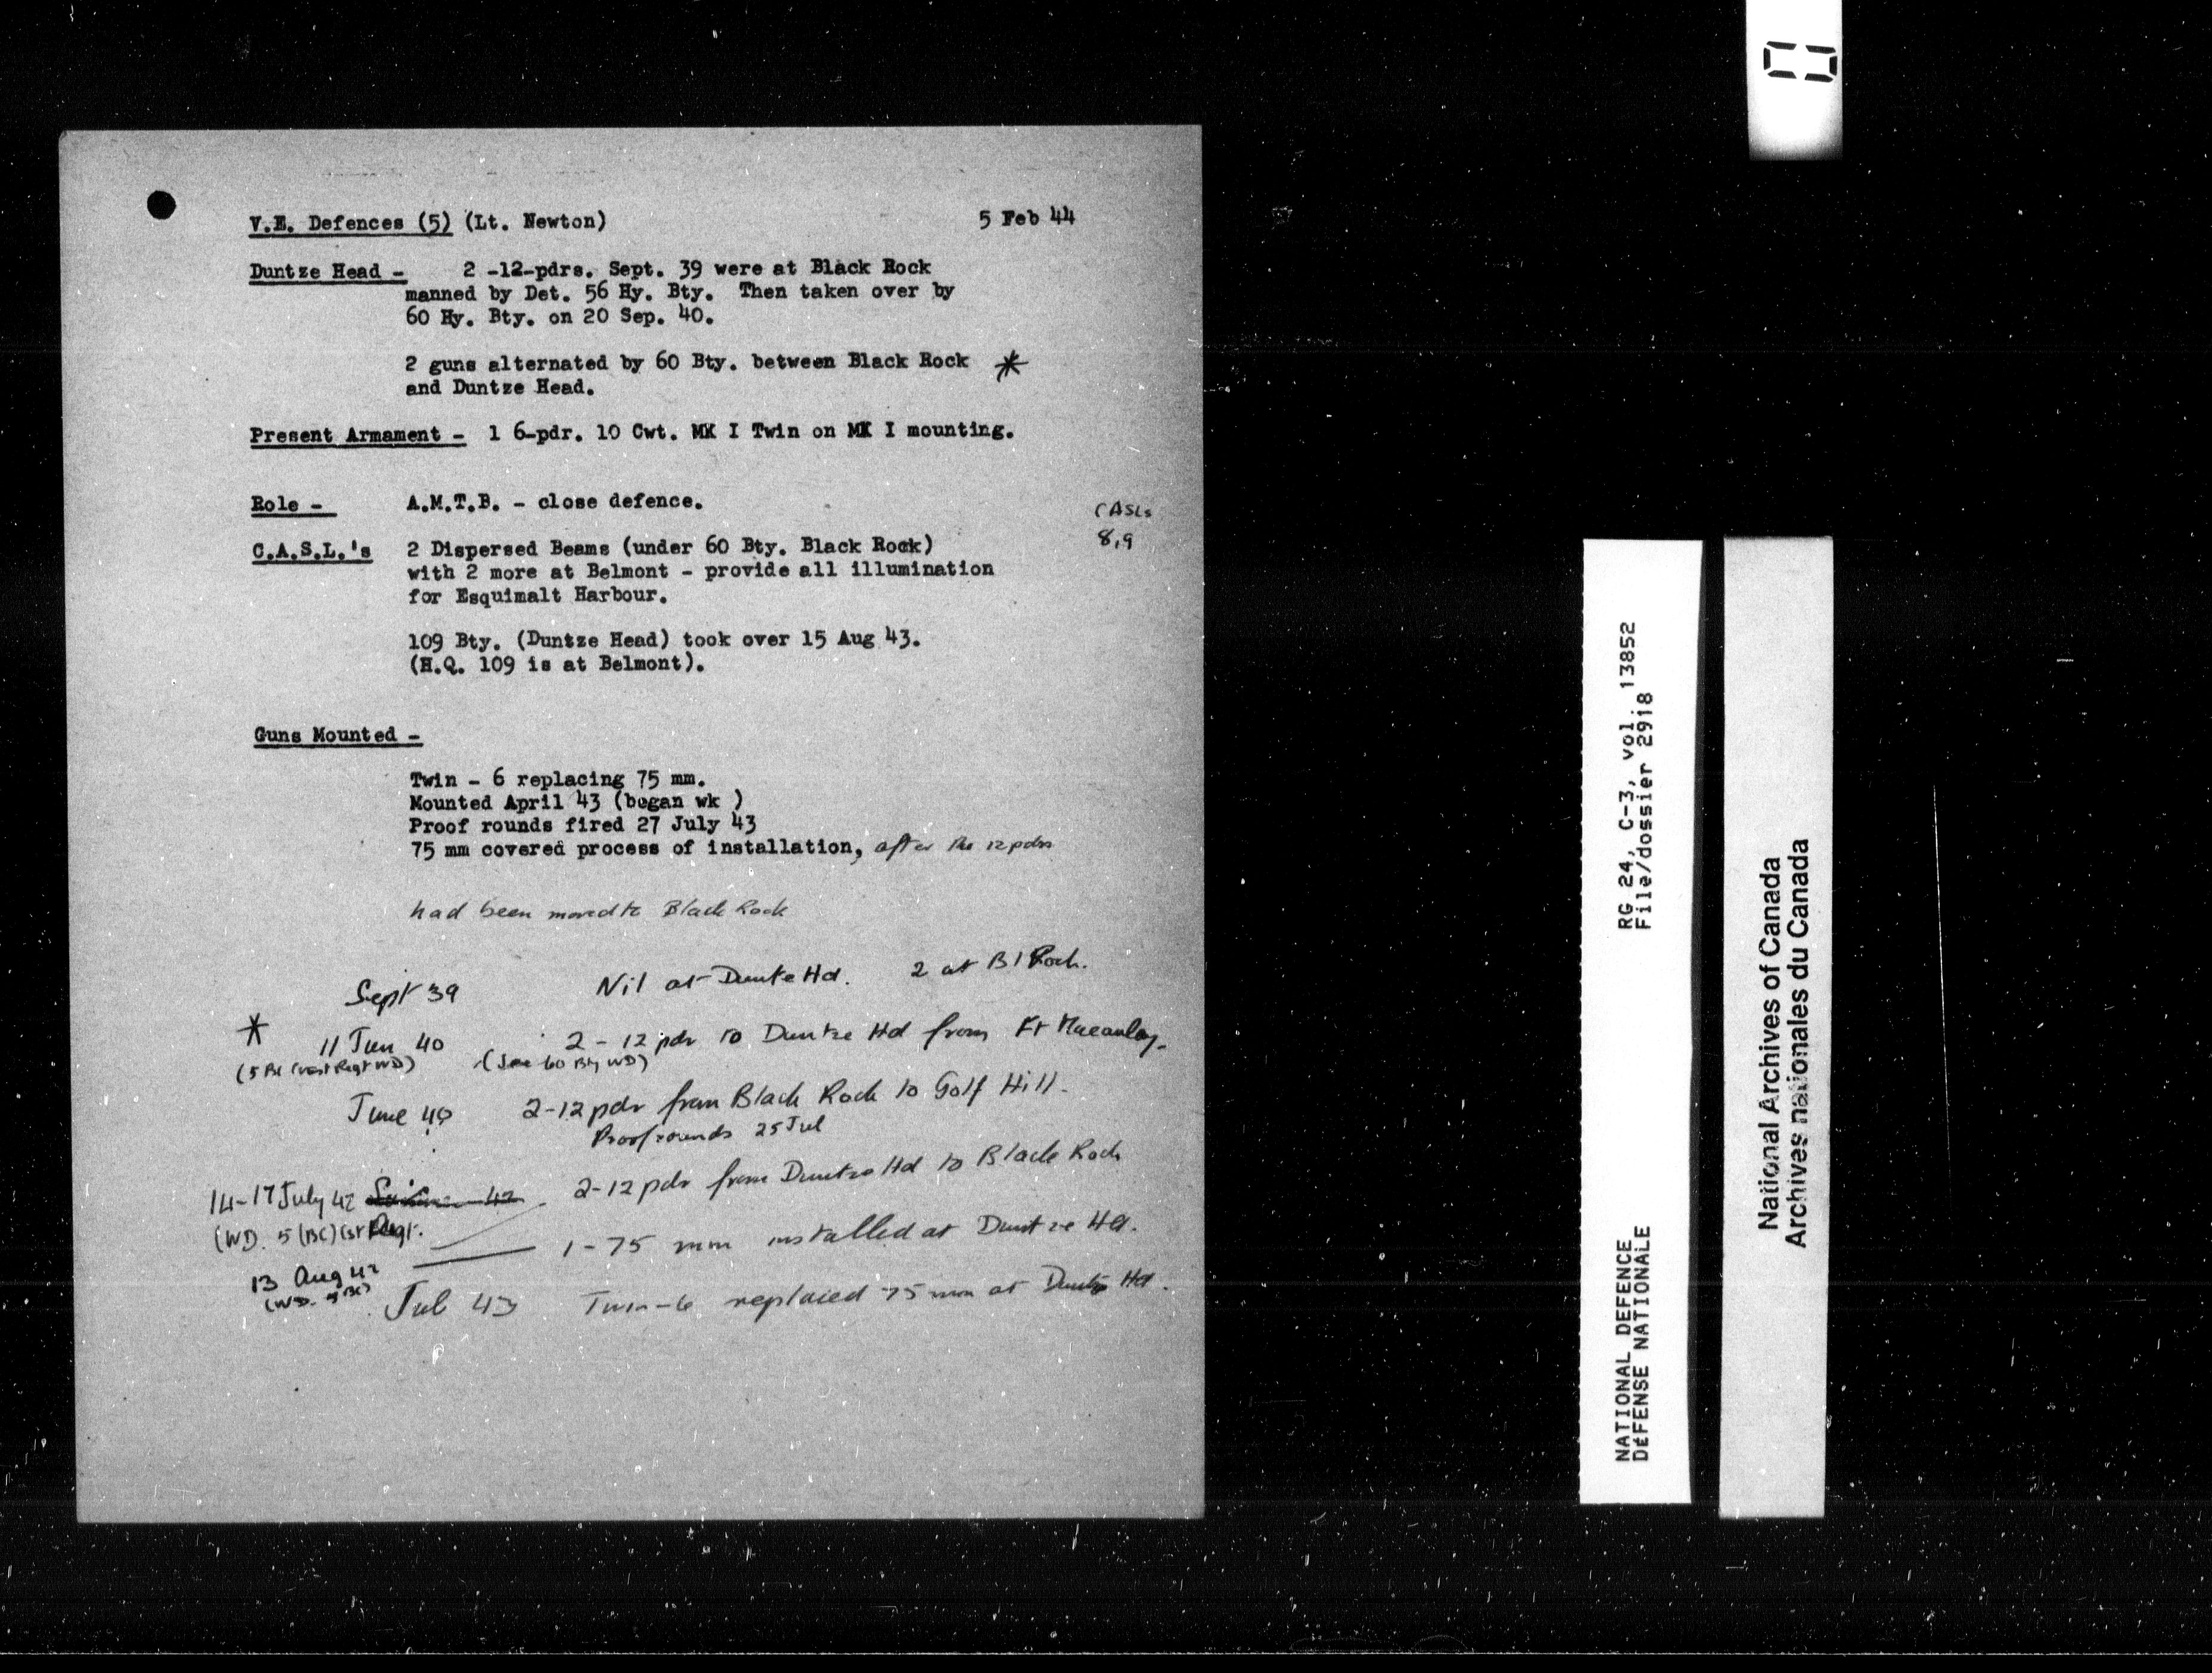 V.E. Defences (5) (Lt. Newton) 5 Feb 44
Duntze Head - 2 -12-pdrs. Sept. 39 were at Black Rock
manned by Det. 56 Hy. Bty. Then taken over by
60 Hy. Bty. on 20 Sep. 40.
2 guns alternated by 60 Bty. between Black Rock *
and Duntze Head.
Present Armament - 1 6-pdr. 10 Cwt. MK I Twin on MK I mounting.
Role - A.M.T.B. - close defence.
CASLs
8,9
C.A.S.L.'s 2 Dispersed Beams (under 60 Bty. Black Rock)
with 2 more at Belmont - provide all illumination
for Esquimalt Harbour.
109 Bty. (Duntze Head) took over 15 Aug 43.
(H.Q. 109 is at Belmont).
Guns Mounted -
Twin - 6 replacing 75 mm.
Mounted April 43 (began wk )
Proof rounds fired 27 July 43
75 mm covered process of installation, after the 12 pdrs
had been moved to Black Rock
Sept 39 Nil at Duntze Hd. 2 at Bl Rock.
* 11 Jun 40 2 - 12 pdr to Duntze Hd from Ft Macaulay.
(5 BC Coast Regt WD) (See 60 Bty WD)
June 40 2-12 pdr from Black Rock to Golf Hill.
Proof rounds 25 Jul
14-17 July 42 2-12 pdr from Duntze Hd to Black Rock
(WD. 5 (BC) Cst Regt.
1 - 75 mm installed at Duntze Hd.
13 Aug 42
(WD. 5 BC)
Jul 43 Twin-6 replaced 75 mm at Duntze Hd.
RG 24, C-3, vol. 13852
File/dossier 2918
NATIONAL DEFENCE
DÉFENSE NATIONALE
National Archives of Canada
Archives nationales du Canada